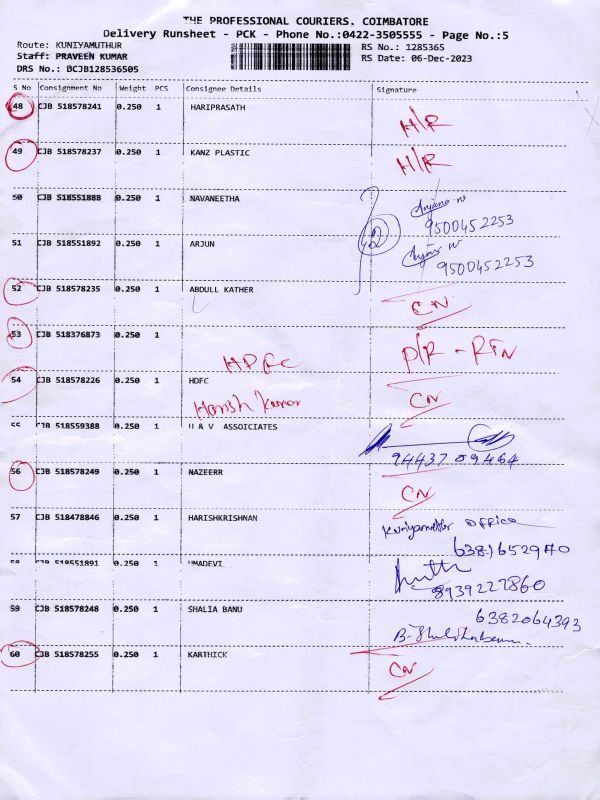 THE PROFESSIONAL COURIERS, COIMBATORE
Delivery Runsheet - PCK - Phone No.:0422-3505555 - Page No.:5
Route: KUNIYAMUTHUR RS No.: 1285365
Staff: PRAVEEN KUMAR RS Date: 06-Dec-2023
DRS No.: BCJB128536505
S No Consignment No Weight PCS Consignee Details Signature
48 CJB 518578241 0.250 1 HARIPRASATH H/R
49 CJB 518578237 0.250 1 KANZ PLASTIC H/R
50 CJB 518551888 0.250 1 NAVANEETHA
9500452253
51 CJB 518551892 0.250 1 ARJUN
9500452253
52 CJB 518578235 0.250 1 ABDULL KATHER CN
53 CJB 518376873 0.250 1 D/R - RTN
HDFC
54 CJB 518578226 0.250 1 HDFC CN
Harish Kumar
55 CJB 518559388 0.250 1 U & V ASSOICIATES
94437 09464
56 CJB 518578249 0.250 1 NAZEERR CN
57 CJB 518478846 0.250 1 HARISHKRISHNAN Kuniyamuthur office
6381652970
58 CJB 518551891 0.250 1 UMADEVI
8939227860
59 CJB 518578248 0.250 1 SHALIA BANU 6382064393
60 CJB 518578255 0.250 1 KARTHICK CN